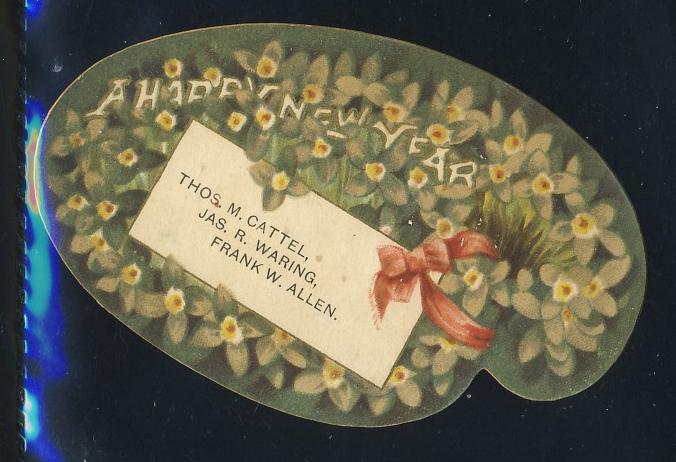 A HAPPY NEW YEAR
THOS. M. CATTEL,
JAS. R. WARING,
FRANK W. ALLEN.